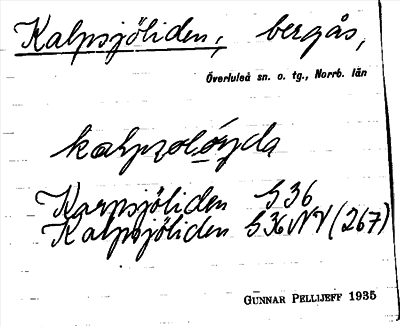 Kalpsjöliden, bergås,
Överluleå sn. o. tg., Norrb. län
Karpsjöliden G 36
Kalpsjöliden G 36 NV (267)
GUNNAR PELLIJEFF 1935